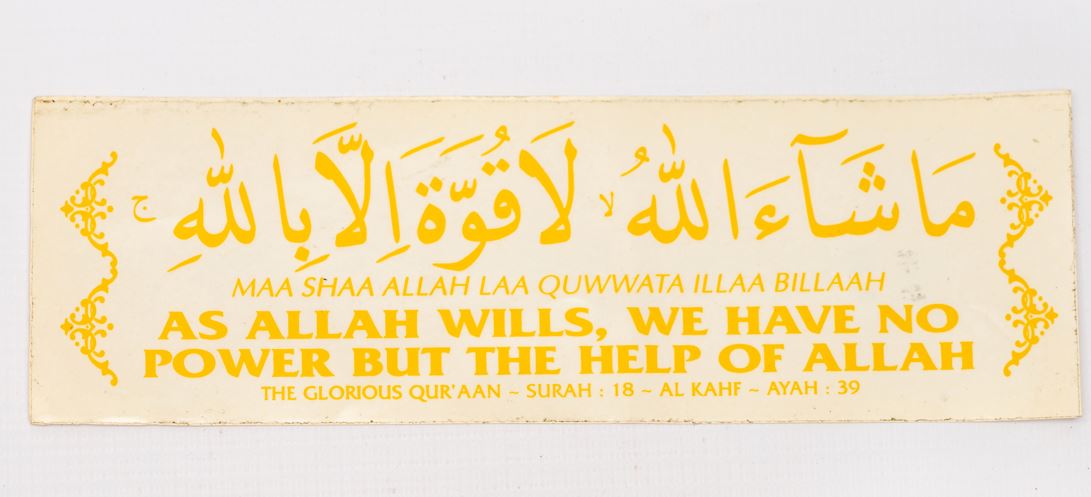 مَا شَآءَ اللّٰهُ ۙ لَا قُوَّةَ اِلَّا بِاللّٰهِ ۚ
MAA SHAA ALLAH LAA QUWWATA ILLAA BILLAAH
AS ALLAH WILLS, WE HAVE NO
POWER BUT THE HELP OF ALLAH
THE GLORIOUS QUR'AAN ~ SURAH : 18 ~ AL KAHF ~ AYAH : 39